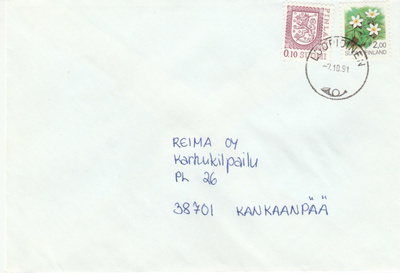 FINLAND
0.10 SUOMI
2,00
SUOMI FINLAND
-7.10.91
REIMA OY
Karhukilpailu
PL 26
38701 KANKAANPÄÄ